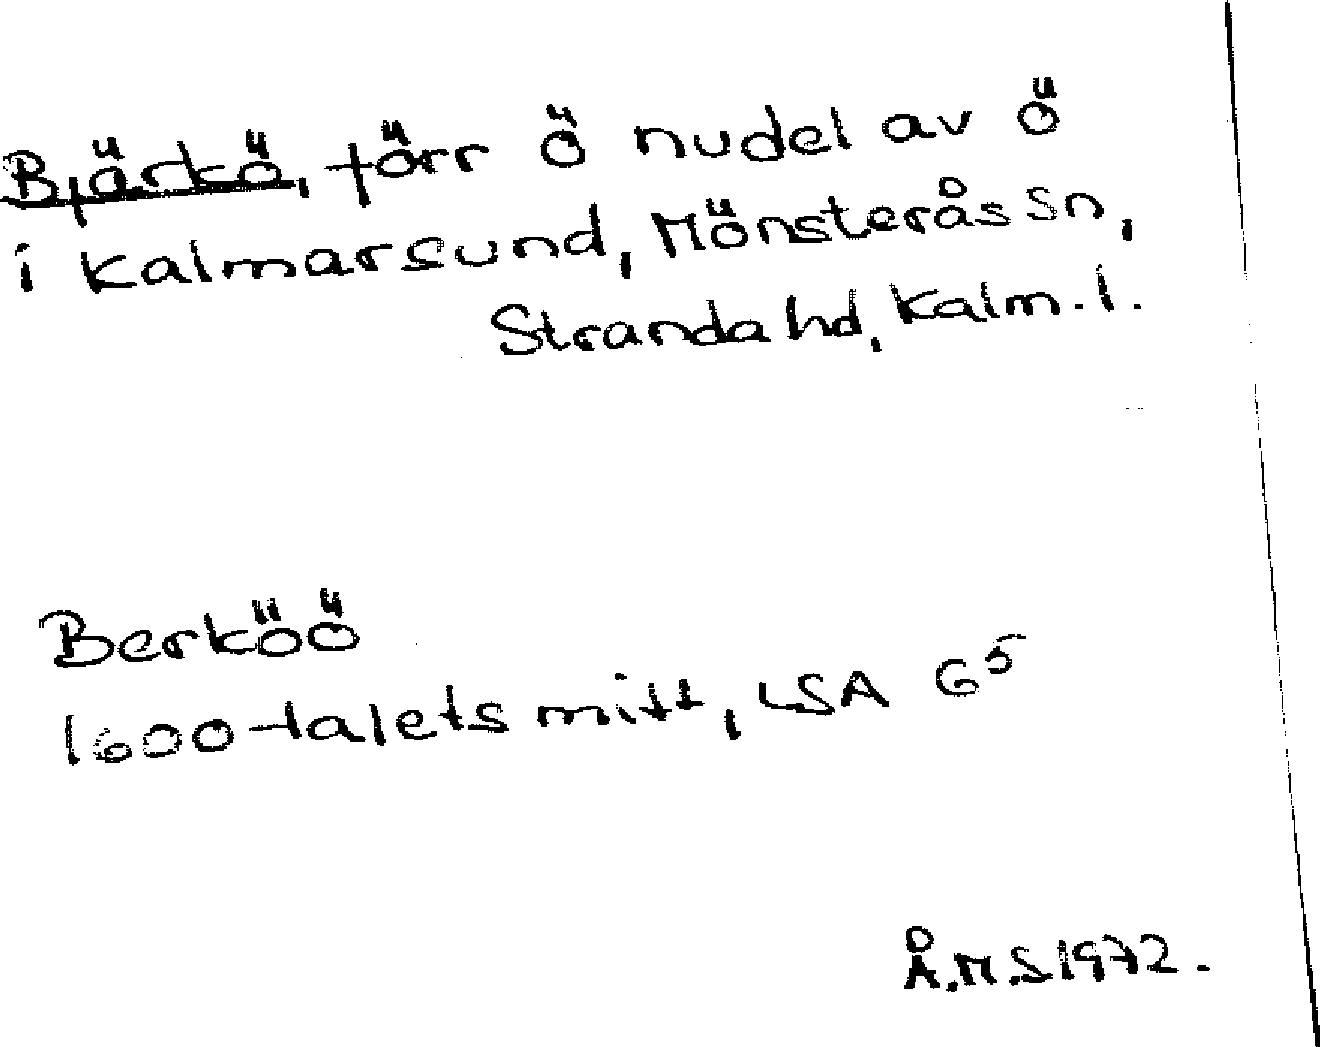 Bjärkö, förr ö nudel av ö
i Kalmarsund, Mönsterås sn,
Stranda hd, Kalm. l.
Berköö
1600-talets mitt, LSA G⁵
Å.M.S 1972.